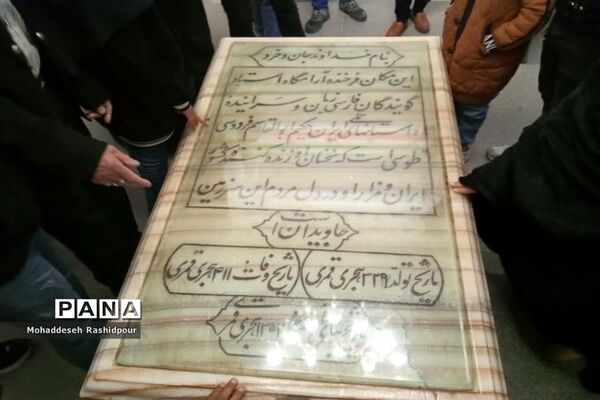 بنام خداوند جان و خرد
این مکان فرخنده آرامگاه استاد
گویندگان فارسی زبان و سراینده
داستانهای ملی ایران حکیم ابوالقاسم فردوسی
طوسی است که سخنان او زنده کننده کشور
ایران و مزار او در دل مردم این سرزمین
جاویدان است
تاریخ تولد ۳۲۹ هجری قمری
تاریخ وفات ۴۱۱ هجری قمری
هجری قمری
PANA
Mohaddeseh Rashidpour